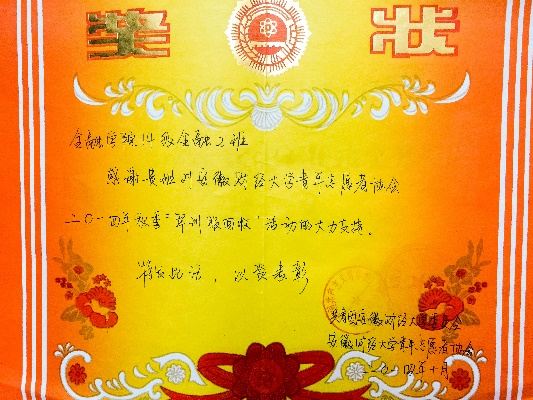 奖状
金融学院14级金融2班
感谢贵班对安徽财经大学青年志愿者协会
二〇一四年秋季“军训服回收”活动的大力支持。
特颁此话，以资表彰
共青团安徽财经大学委员会
安徽财经大学青年志愿者协会
二〇一四年十月